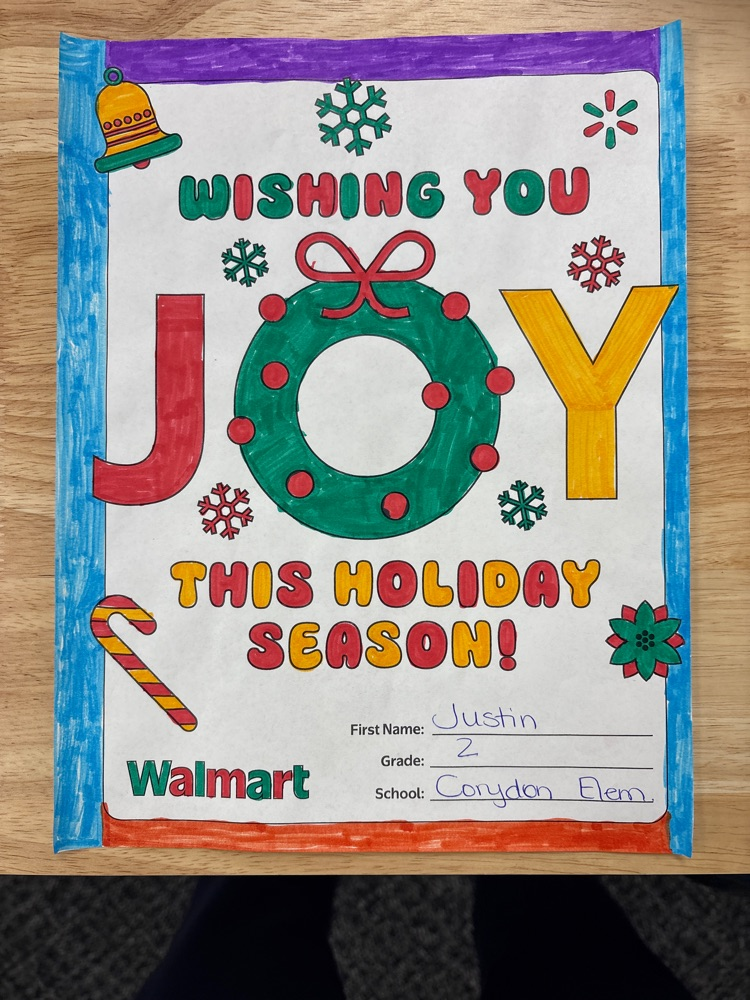 WISHING YOU
JOY
THIS HOLIDAY
SEASON!
First Name: Justin
Grade: 2
School: Corydon Elem
Walmart